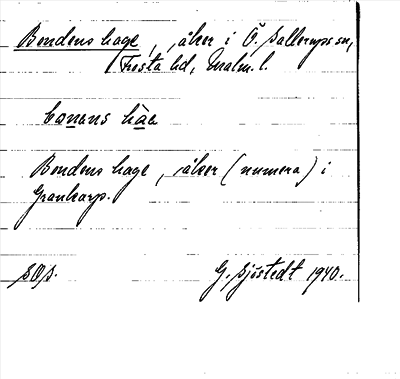 Bondens hage, åker i Ö. Sallerups sn,
Frosta hd, Malm. l.
bonens hae
Bondens hage, åker (numera) i
Grankarp.
SOS.
G. Sjöstedt 1940.